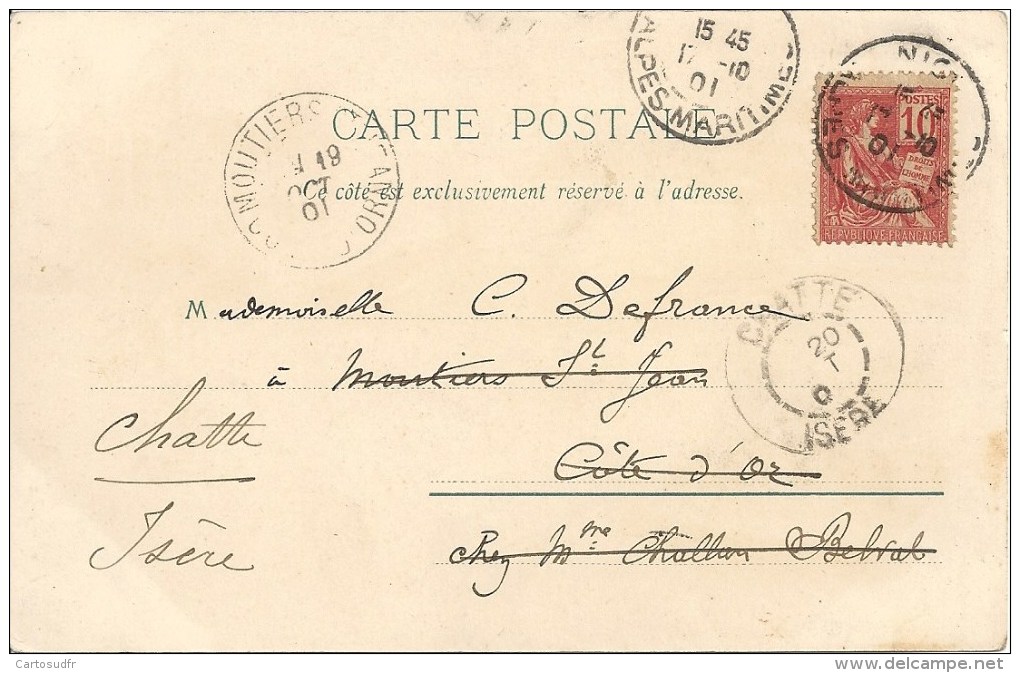 15 45
17 -10
01
ALPES-MARITIMES
POSTES
10
DROITS
DE
L'HOMME
REPUBLIQUE FRANÇAISE
CARTE POSTALE
MOUTIERS
19
OCT
01
Ce côté est exclusivement réservé à l'adresse.
Mademoiselle C. Defrance
à Moutiers St Jean
CHATTE
20
ISÈRE
Chatte
Côte d'Or
Isère
Chez Mme Challan Belval
Cartosudfr
www.delcampe.net